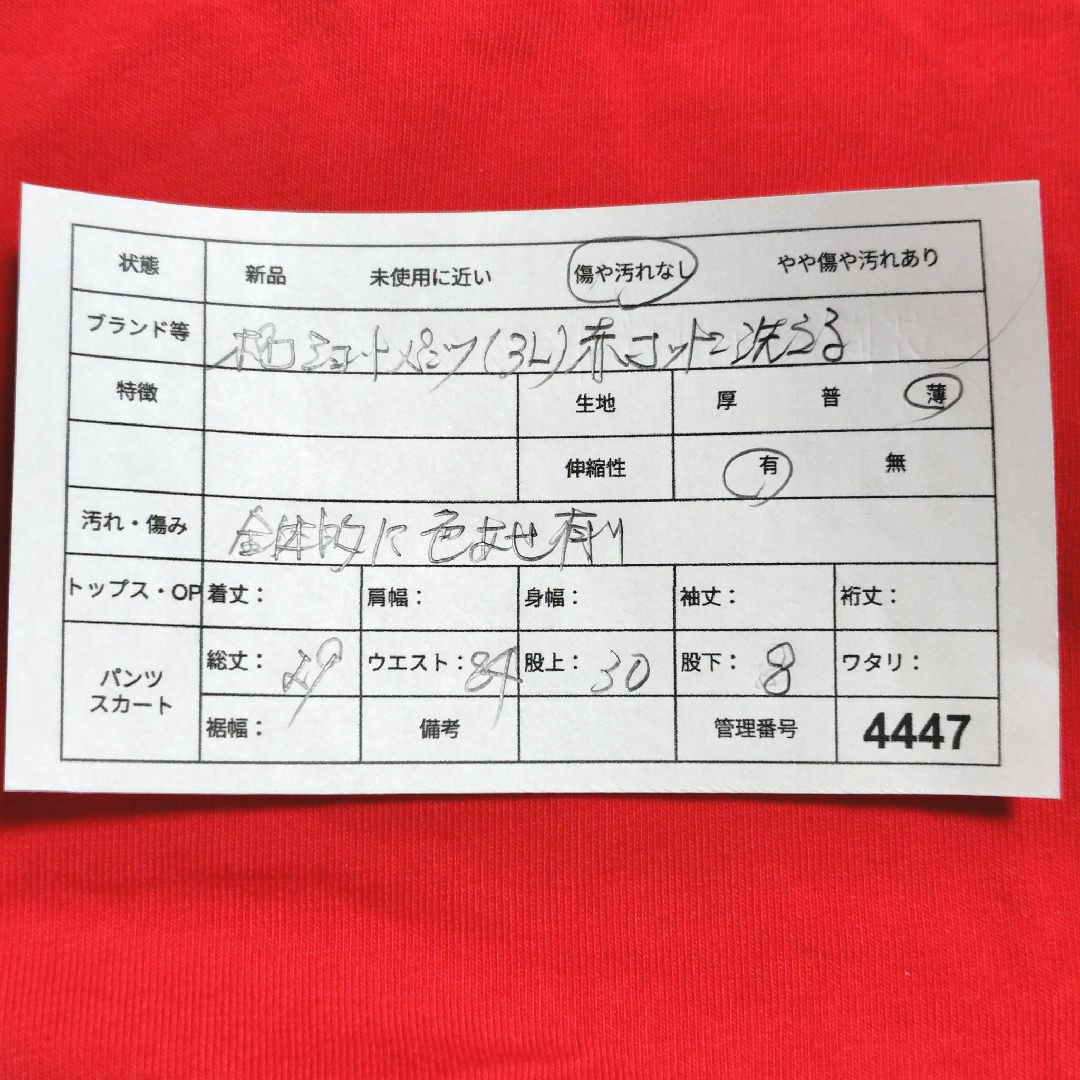 状態 新品 未使用に近い 傷や汚れなし やや傷や汚れあり
ブランド等 ショートパンツ(3L)赤コットン洗える
特徴 生地 厚 普 薄
伸縮性 有 無
汚れ・傷み 全体的に色あせ有り
トップス・OP 着丈: 肩幅: 身幅: 袖丈: 裄丈:
パンツ スカート 総丈: 29 ウエスト: 84 股上: 30 股下: 8 ワタリ:
裾幅: 備考 管理番号 4447